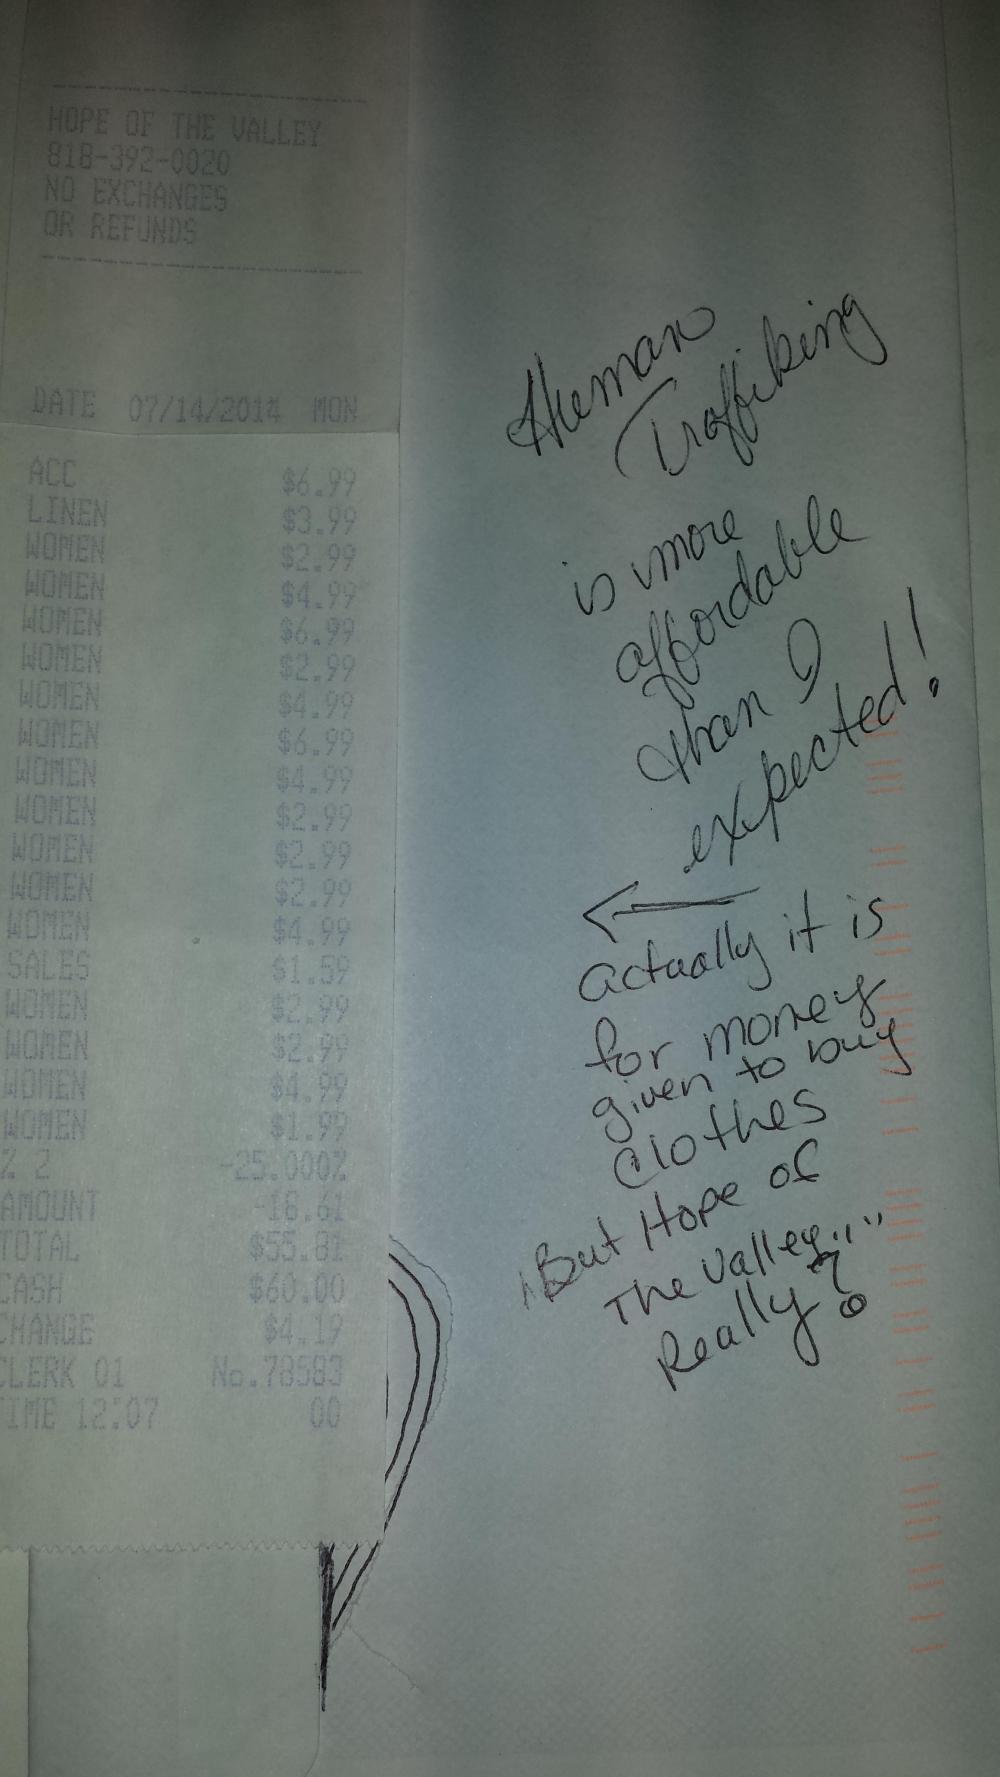 HOPE OF THE VALLEY
818-392-0020
NO EXCHANGES
OR REFUNDS
DATE 07/14/2014 MON
ACC $6.99
LINEN $3.99
WOMEN $2.99
WOMEN $4.99
WOMEN $6.99
WOMEN $2.99
WOMEN $4.99
WOMEN $6.99
WOMEN $4.99
WOMEN $2.99
WOMEN $2.99
WOMEN $2.99
WOMEN $4.99
SALES $1.59
WOMEN $2.99
WOMEN $2.99
WOMEN $4.99
WOMEN $1.99
% 2 -25.000%
AMOUNT -18.61
TOTAL $55.81
CASH $60.00
CHANGE $4.19
CLERK 01 No.78583
TIME 12:07 00
Human
Traffiking
is more
affordable
than I
expected!
actually it is
for money
given to buy
Clothes
But Hope of
The Valley...
Really?